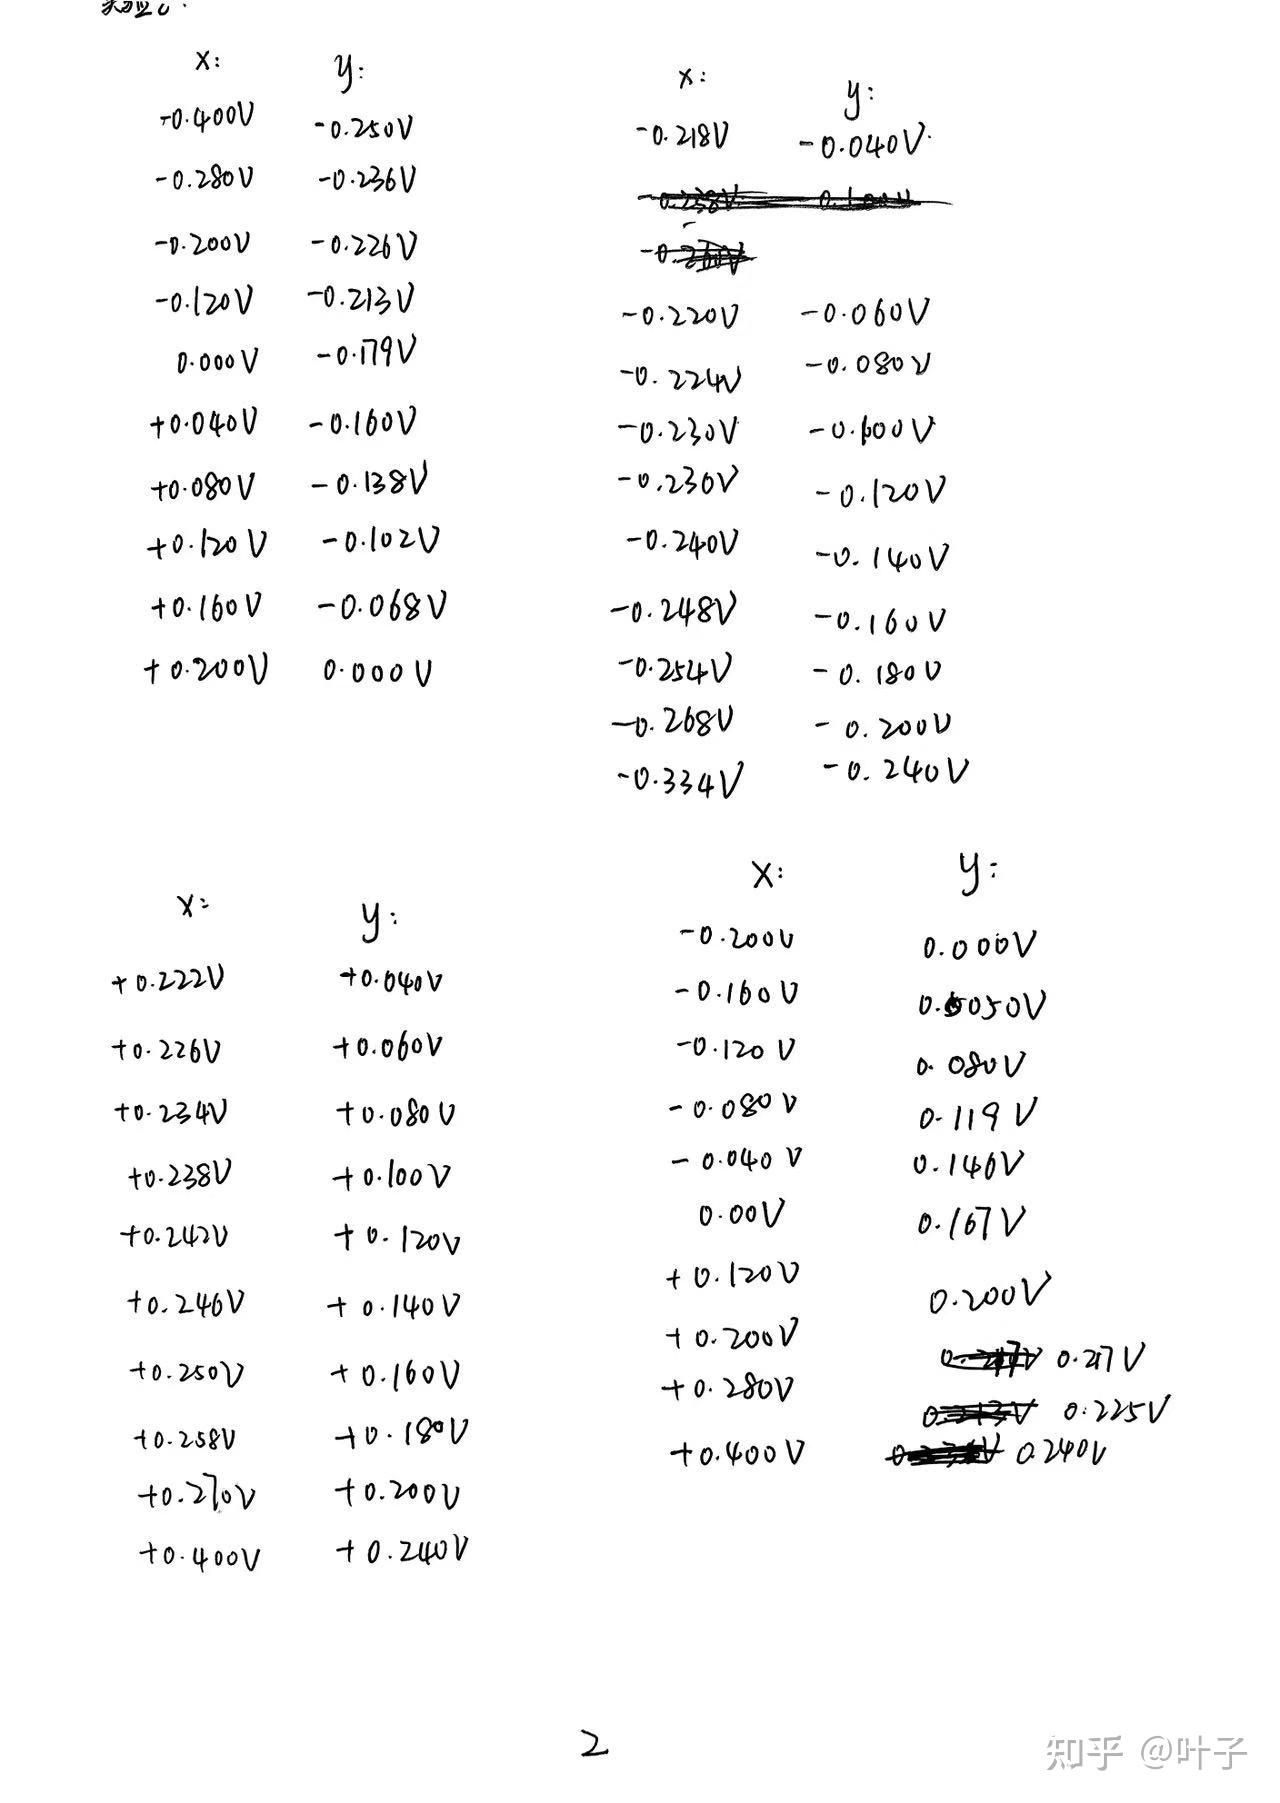 x: y:
-0.400V -0.250V
-0.280V -0.236V
-0.200V -0.226V
-0.120V -0.213V
0.000V -0.179V
+0.040V -0.160V
+0.080V -0.138V
+0.120V -0.102V
+0.160V -0.068V
+0.200V 0.000V
x: y:
-0.218V -0.040V
-0.220V -0.060V
-0.224V -0.080V
-0.230V -0.100V
-0.230V -0.120V
-0.240V -0.140V
-0.248V -0.160V
-0.254V -0.180V
-0.268V -0.200V
-0.334V -0.240V
x: y:
+0.222V +0.040V
+0.226V +0.060V
+0.234V +0.080V
+0.238V +0.100V
+0.242V +0.120V
+0.246V +0.140V
+0.250V +0.160V
+0.258V +0.180V
+0.270V +0.200V
+0.400V +0.240V
x: y:
-0.200V 0.000V
-0.160V 0.050V
-0.120V 0.080V
-0.080V 0.119V
-0.040V 0.146V
0.00V 0.167V
+0.120V 0.200V
+0.200V 0.217V
+0.280V 0.225V
+0.400V 0.240V
2
知乎 @叶子